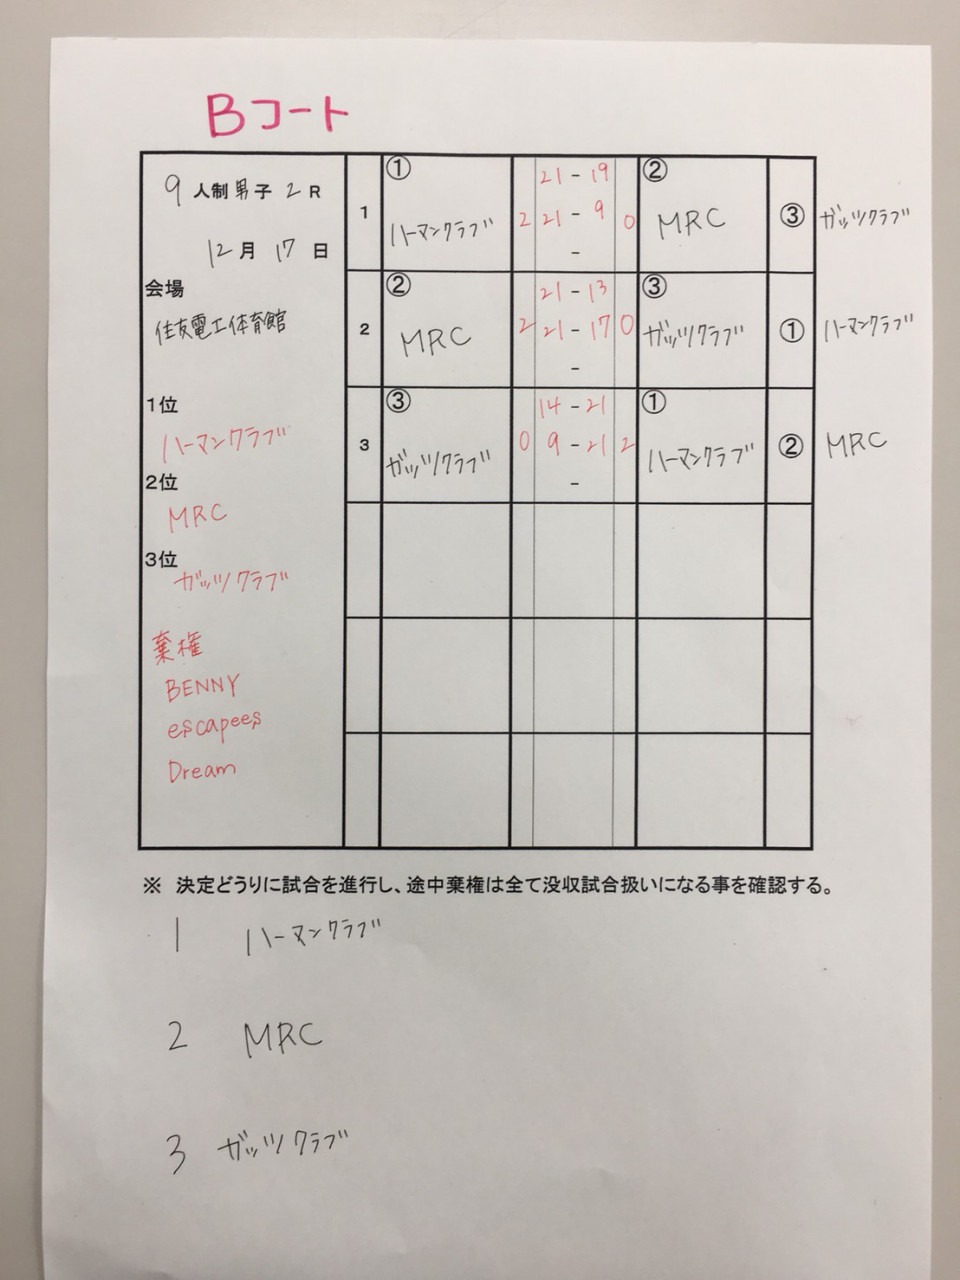 Bコート
9人制男子 2 R
12月 17 日
会場
住友電工体育館
1位
ハーマンクラブ
2位
MRC
3位
ガッツクラブ
棄権
BENNY
escapees
Dream
1 ① ハーマンクラブ 2 21 - 19 0 ② MRC ③ ガッツクラブ
21 - 9
-
2 ② MRC 2 21 - 13 0 ③ ガッツクラブ ① ハーマンクラブ
21 - 17
-
3 ③ ガッツクラブ 0 14 - 21 2 ① ハーマンクラブ ② MRC
9 - 21
-
※ 決定どうりに試合を進行し、途中棄権は全て没収試合扱いになる事を確認する。
1 ハーマンクラブ
2 MRC
3 ガッツクラブ